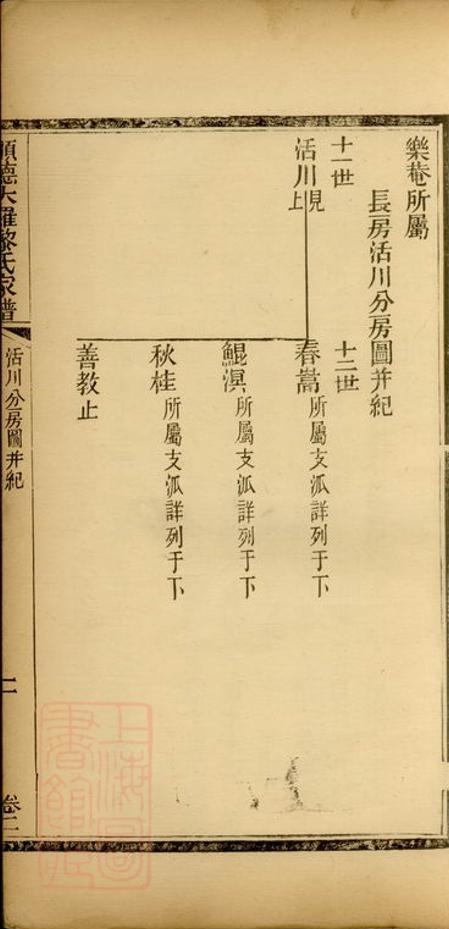 樂菴所屬
長房活川分房圖并紀
十一世
十二世
活川見上
春嵩所屬支泒詳列于下
鯤溟所屬支泒詳列于下
秋桂所屬支泒詳列于下
善教止
順德大羅黎氏家譜
活川分房圖并紀
卷二
上海圖書館藏